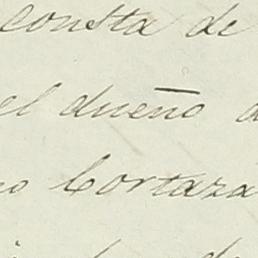 consta de
el dueño
Cortaza